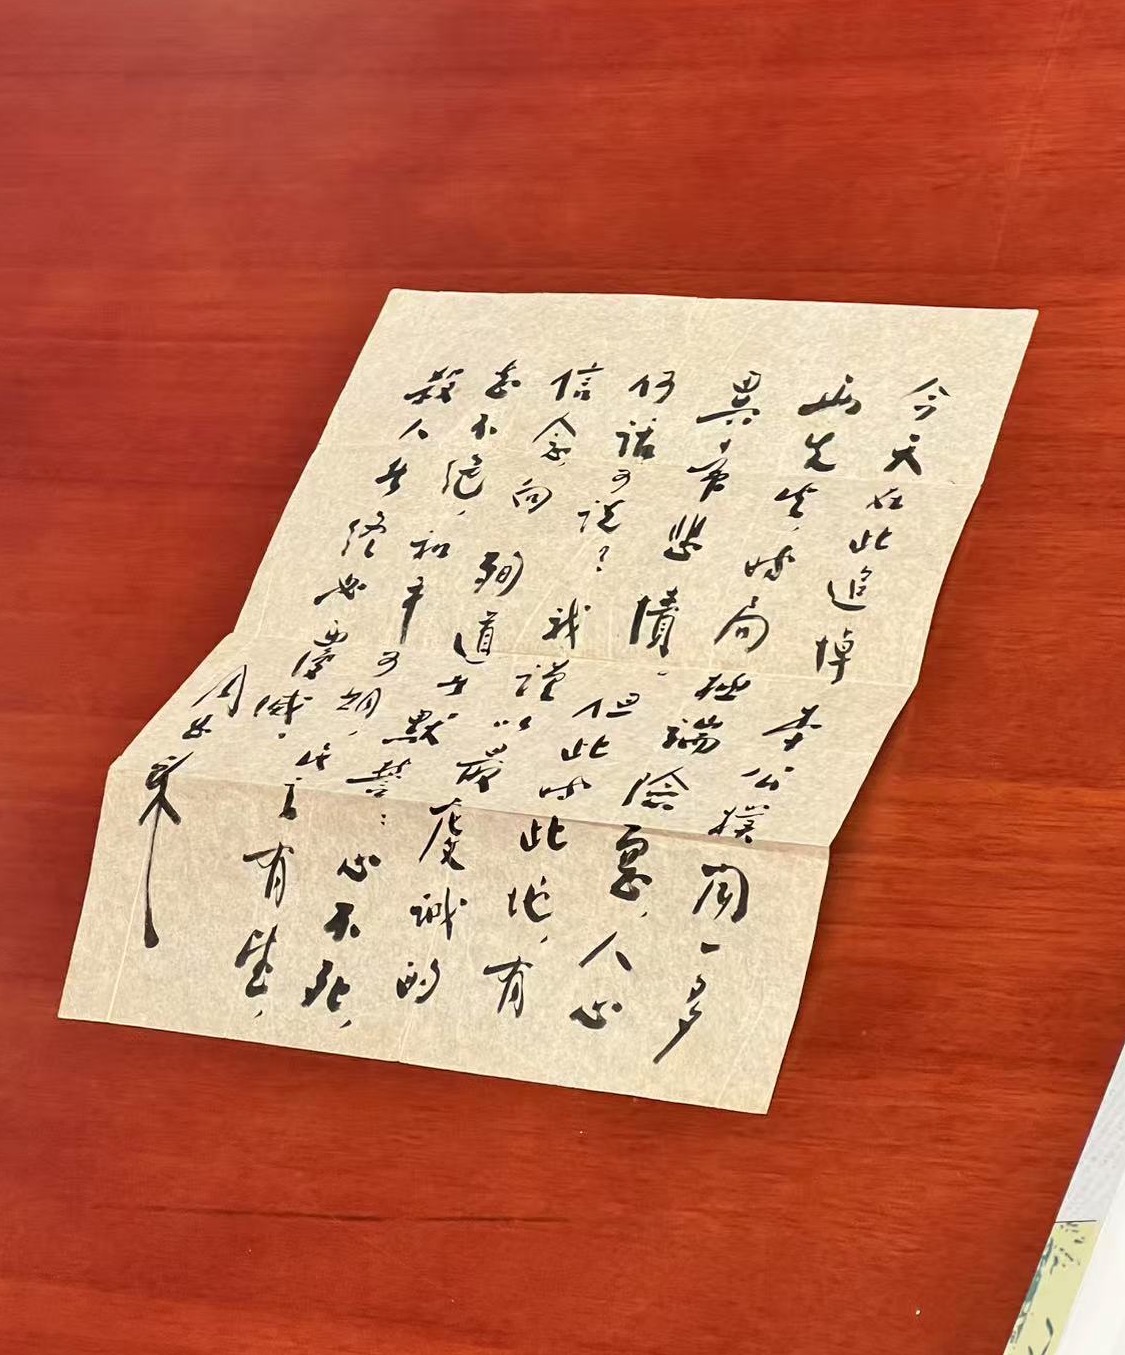 今天在此追悼李公樸聞一多
兩先生,時局極端險惡,人心
異常悲憤。但此時此地,有
何話可說?我謹以最虔誠的
信念,向殉道者默誓:心不死,
志不絕,和平可期,民主有望,
殺人者終必覆滅。
周恩來